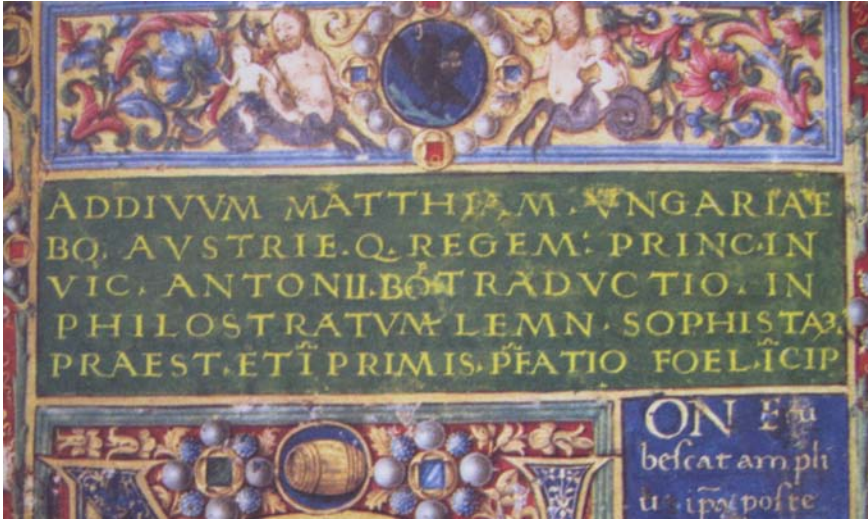 ADDIVVM MATTHIAM. VNGARIAE
BO. AVSTRIE. Q. REGEM: PRINC. IN
VIC. ANTONII. BO. TRADVCTIO. IN
PHILOSTRATVM LEMN. SOPHISTAꝫ.
PRAEST. ET ĩ PRIMIS. P̃FATIO FOEL. ĩCIP
ON
beſcat am pli
poſte